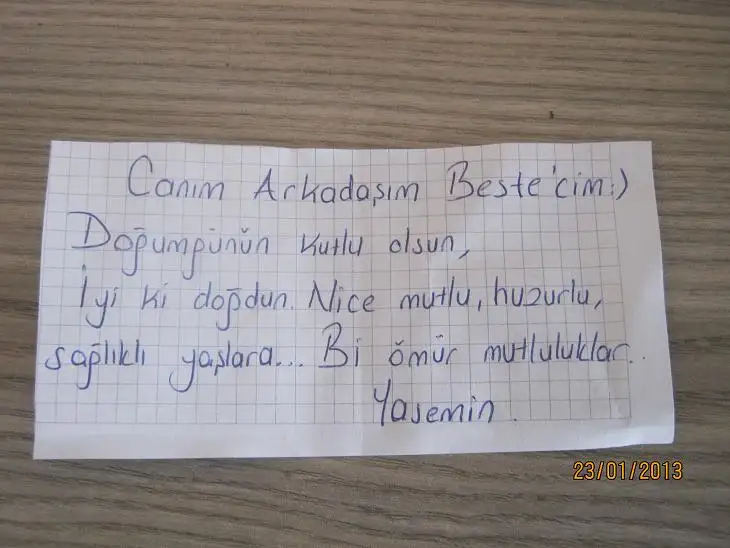 Canım Arkadaşım Beste'cim:)
Doğumgünün kutlu olsun,
İyi ki doğdun. Nice mutlu, huzurlu,
sağlıklı yaşlara... Bi ömür mutluluklar..
Yasemin.
23/01/2013